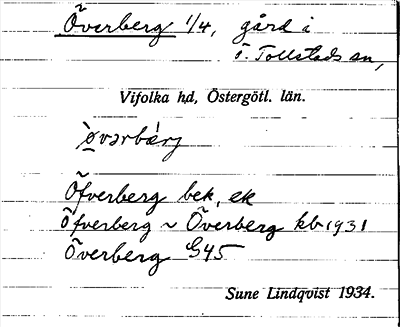 Överberg 1/4, gård i
Ö. Tollstads sn,
Vifolka hd, Östergötl. län.
ö̀vərbærj
Öfverberg bek, ek
Öfverberg ~ Överberg kb 1931
Överberg G45
Sune Lindqvist 1934.